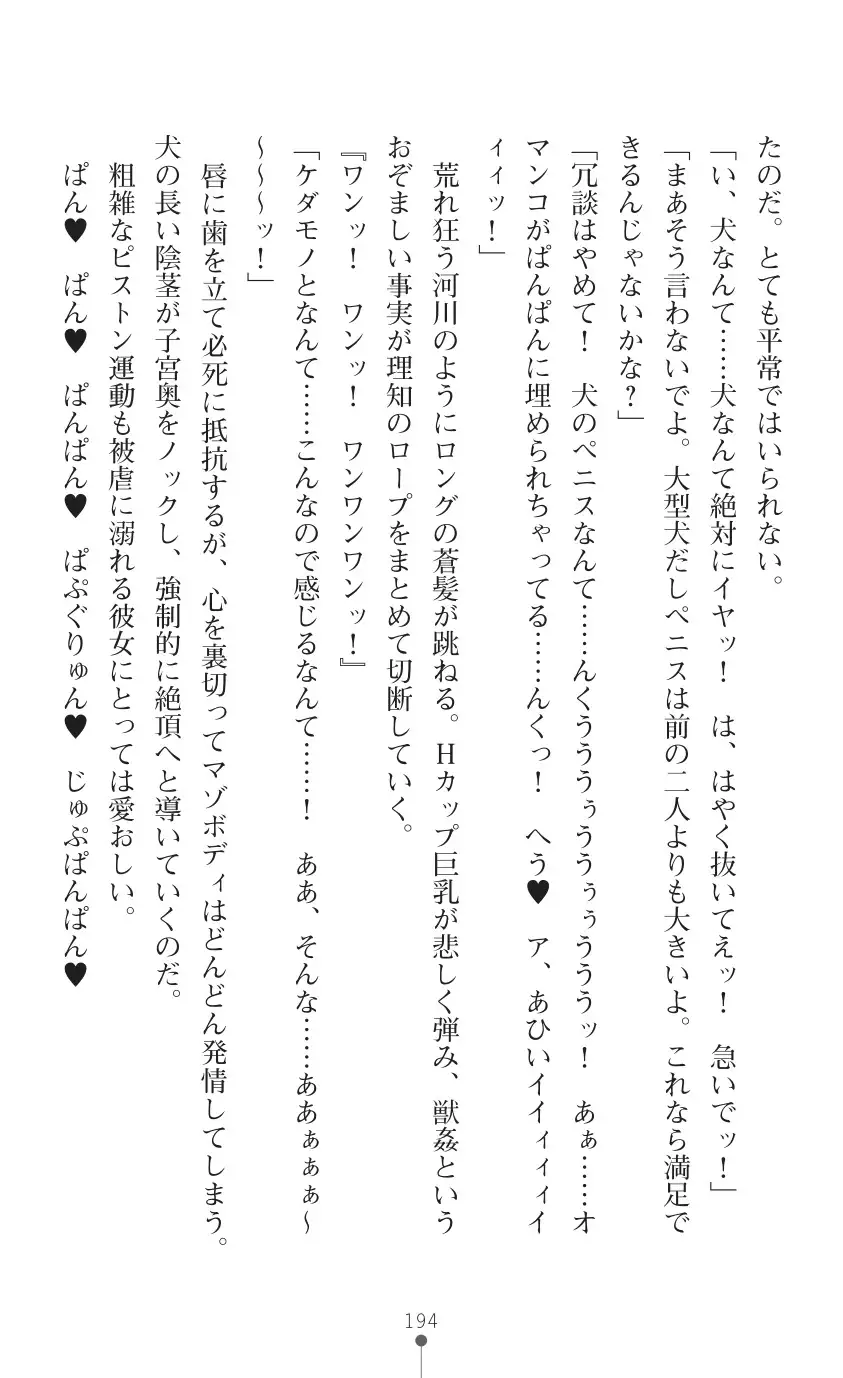 たのだ。とても平常ではいられない。
「い、犬なんて……犬なんて絶対にイヤッ！　は、はやく抜いてえッ！　急いでッ！」
「まあそう言わないでよ。大型犬だしペニスは前の二人よりも大きいよ。これなら満足で
きるんじゃないかな？」
「冗談はやめて！　犬のペニスなんて……んくうううぅううぅぅうううッ！　あぁ……オ
マンコがぱんぱんに埋められちゃってる……んくっ！　へう♥　ア、あひいイイィィィイ
ィィッ！」
　荒れ狂う河川のようにロングの蒼髪が跳ねる。Ｈカップ巨乳が悲しく弾み、獣姦という
おぞましい事実が理知のロープをまとめて切断していく。
『ワンッ！　ワンッ！　ワンワンワンッ！』
「ケダモノとなんて……こんなので感じるなんて……！　ああ、そんな……ああぁぁぁ～
～～～ッ！」
　唇に歯を立て必死に抵抗するが、心を裏切ってマゾボディはどんどん発情してしまう。
犬の長い陰茎が子宮奥をノックし、強制的に絶頂へと導いていくのだ。
　粗雑なピストン運動も被虐に溺れる彼女にとっては愛おしい。
　ぱん♥　ぱん♥　ぱんぱん♥　ぱぷぐりゅん♥　じゅぷぱんぱん♥
194